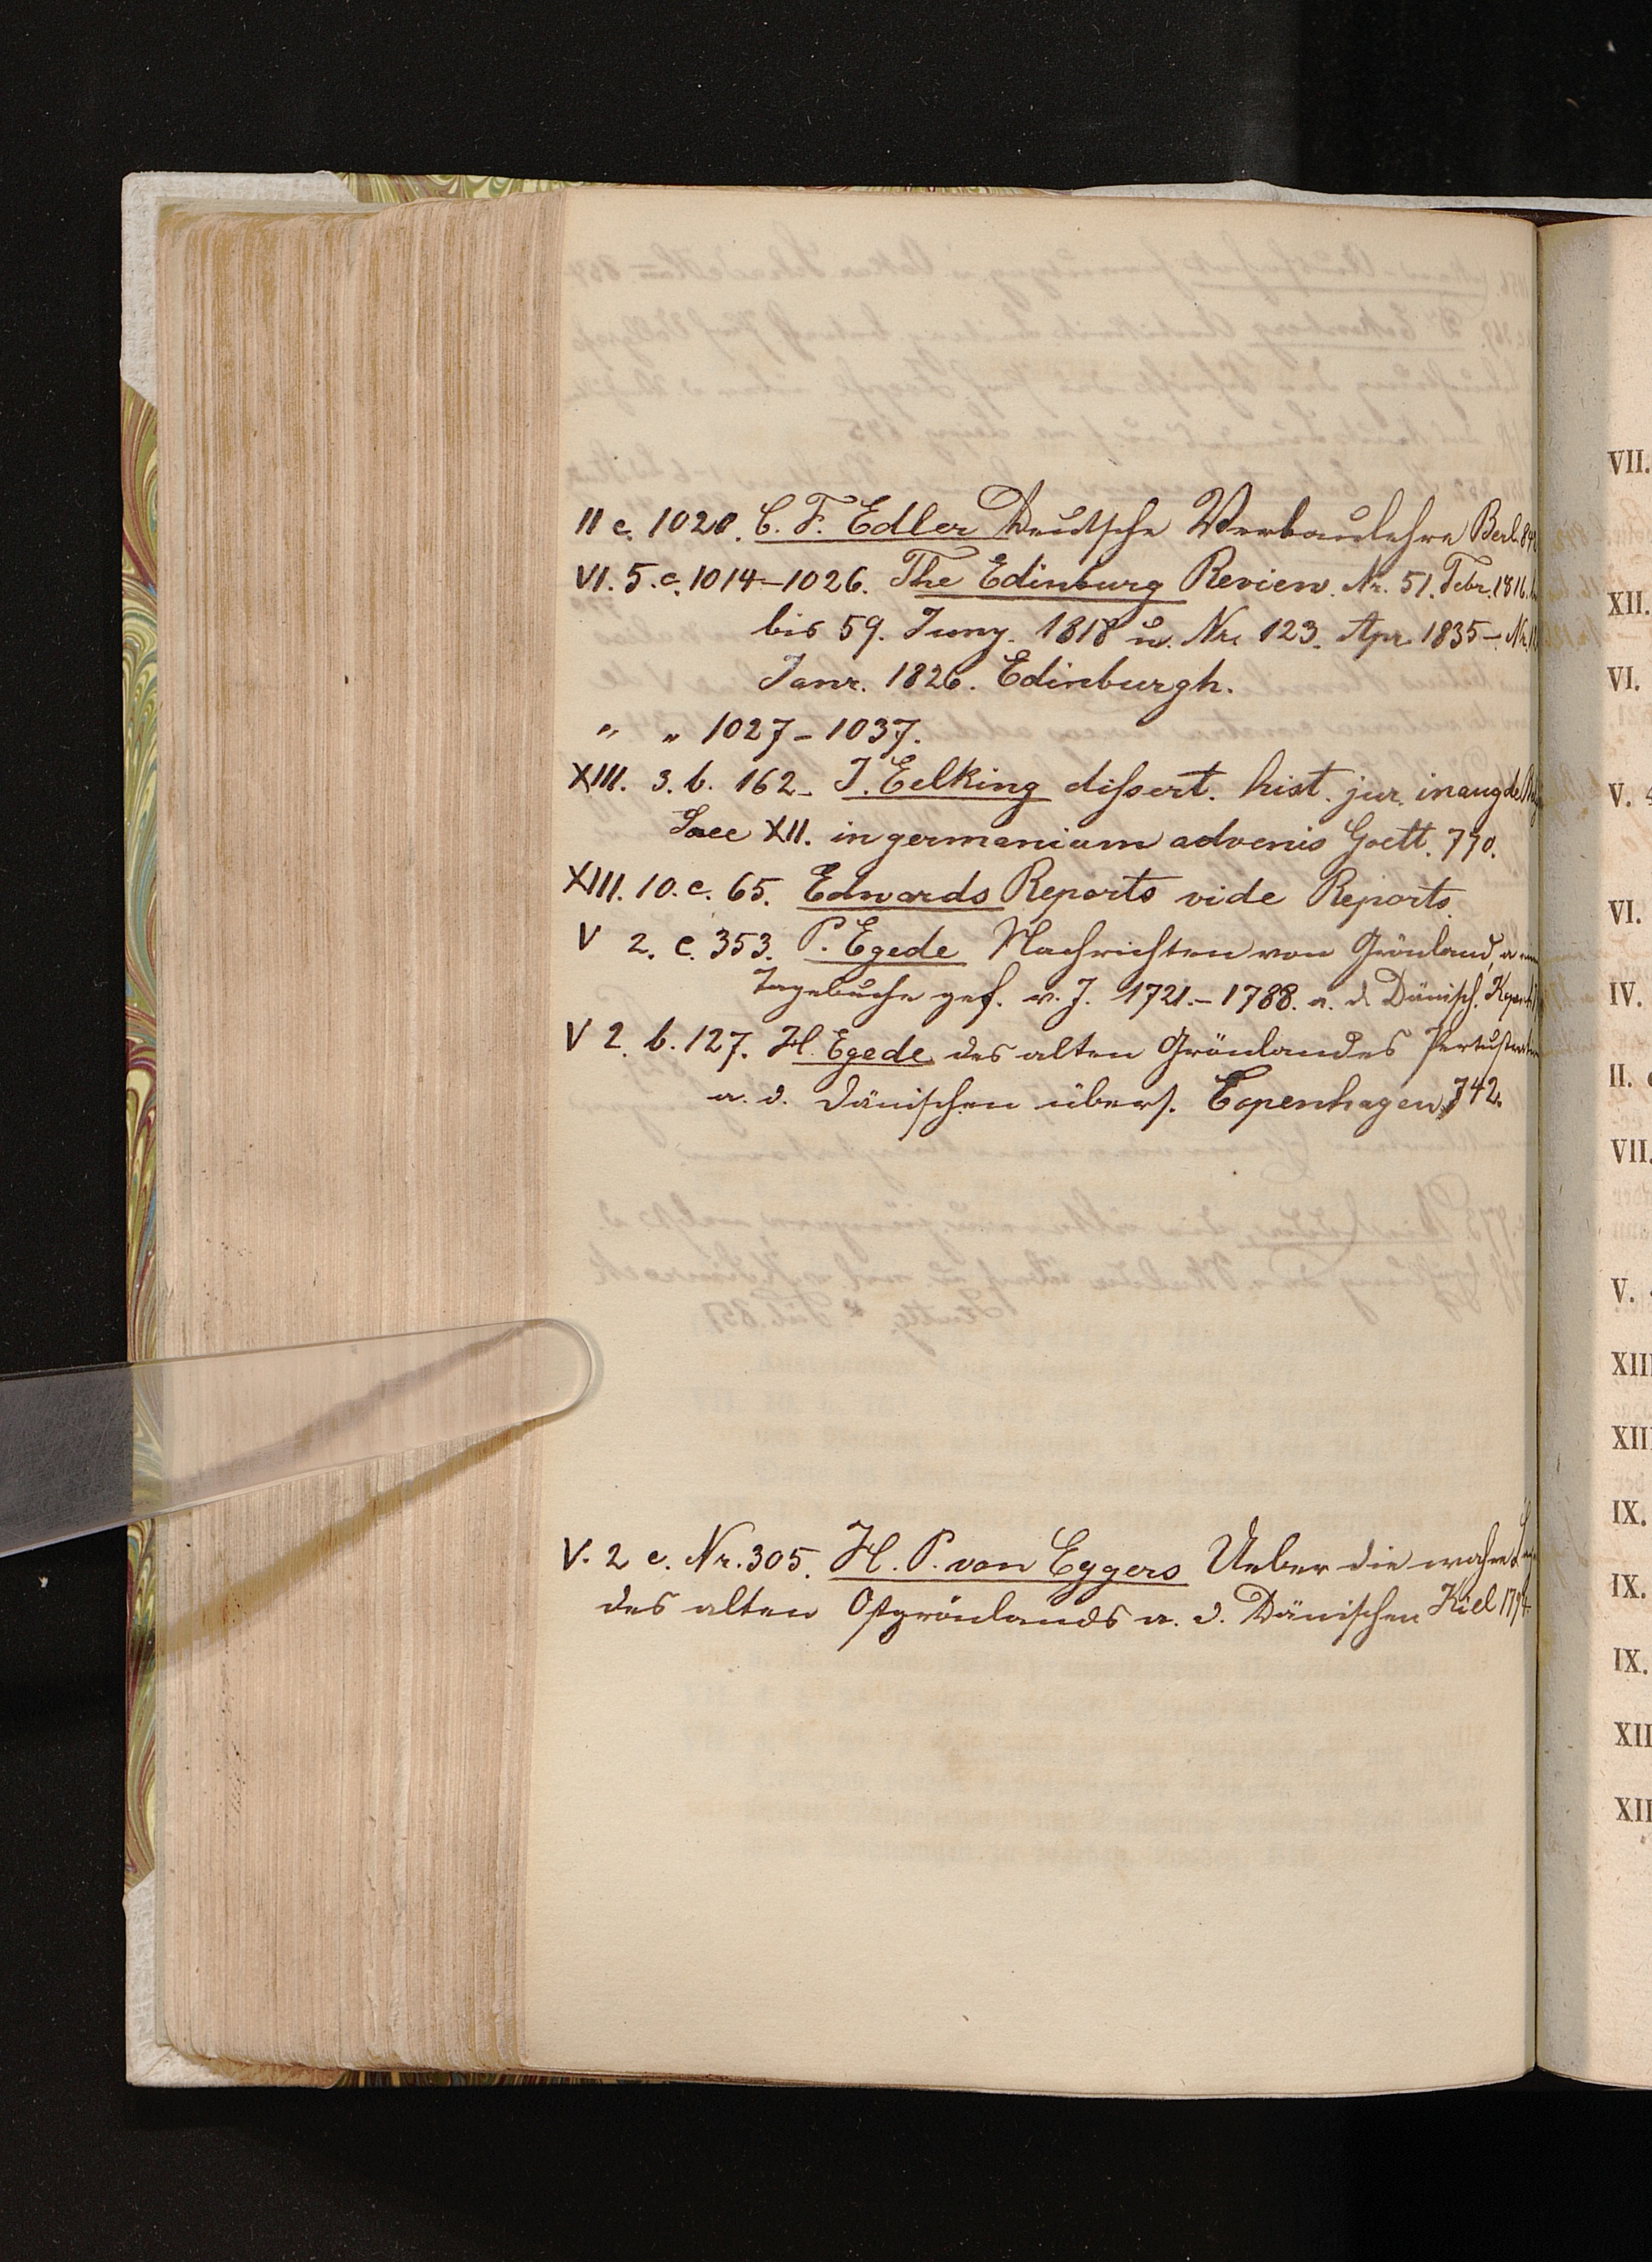 II c. 1020. C. F. Edler Deutsche Versbaulehre Berl. 842
VI. 5. c. 1014–1026. The Edinburg Review. Nr. 51. Febr. 1816.
bis 59. Juny. 1818 u. Nr. 123. Apr. 1835 – Nr.
Janr. 1826. Edinburgh.
" " 1027–1037.
XIII. 3. b. 162. J. Eelking dissert. hist. jur. inaug de
Saec XII. in germaniam advenis Goett. 770.
XIII. 10. c. 65. Edwards Reports vide Reports.
V 2. c. 353. P. Egede Nachrichten von Grönland, a
Tagebuche gef. v. J. 1721.–1788. a. d. Dänisch. Kopenh
V 2. b. 127. H. Egede des alten Grönlandes
a. d. Dänischen übers. Copenhagen, 742.
V. 2 c. Nr. 305. H. P. von Eggers Ueber die wahre
des alten Ostgrönlands a. d. Dänischen Kiel 1794.
VII.
XII.
VI.
V.
VI.
IV.
II.
VII.
V.
XIII
XII
IX.
IX.
IX.
XII
XII